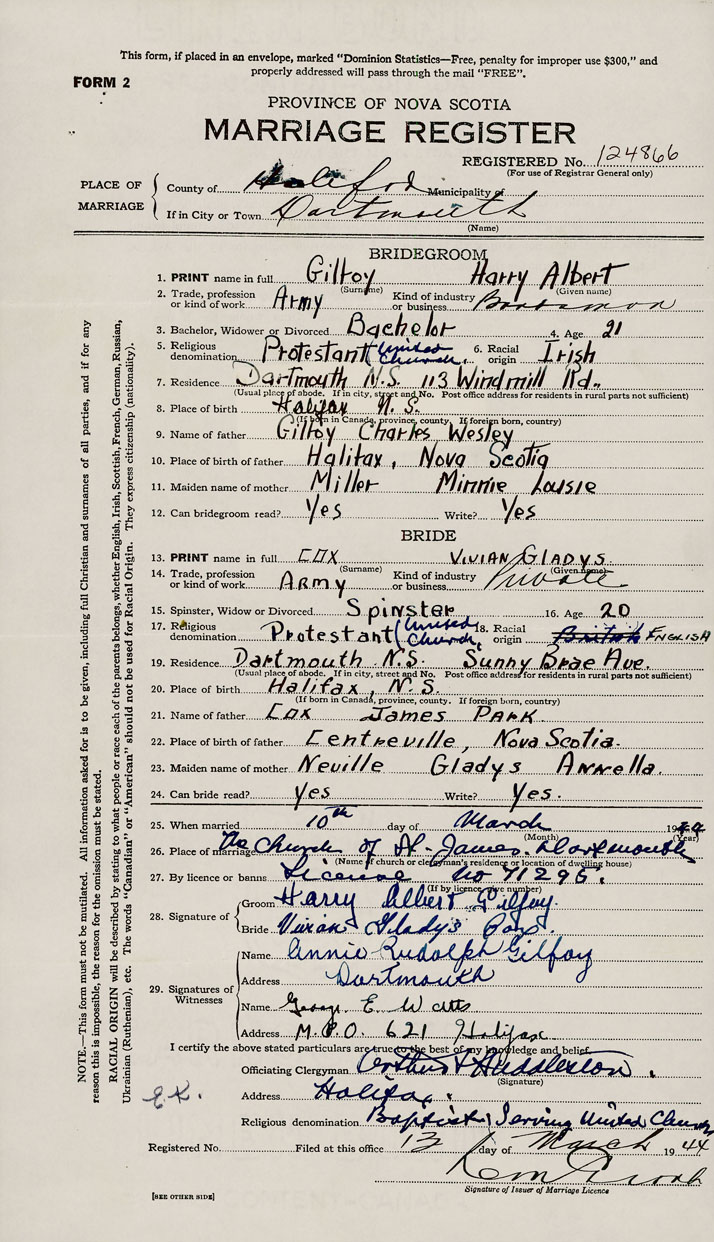 This form, if placed in an envelope, marked "Dominion Statistics—Free, penalty for improper use $300," and
properly addressed will pass through the mail "FREE".
FORM 2
PROVINCE OF NOVA SCOTIA
MARRIAGE REGISTER
REGISTERED No. 124866
(For use of Registrar General only)
PLACE OF MARRIAGE
County of Halifax Municipality of
If in City or Town Dartmouth
(Name)
BRIDEGROOM
1. PRINT name in full Gilfoy Harry Albert
(Surname) (Given name)
2. Trade, profession or kind of work Army Kind of industry or business
3. Bachelor, Widower or Divorced Bachelor 4. Age 21
5. Religious denomination Protestant (United Church) 6. Racial origin Irish
7. Residence Dartmouth N.S. 113 Windmill Rd.
(Usual place of abode. If in city, street and No. Post office address for residents in rural parts not sufficient)
8. Place of birth Halifax N.S.
(If born in Canada, province, county. If foreign born, country)
9. Name of father Gilfoy Charles Wesley
10. Place of birth of father Halifax, Nova Scotia
11. Maiden name of mother Miller Minnie Louisie
12. Can bridegroom read? Yes Write? Yes
BRIDE
13. PRINT name in full COX VIVIAN GLADYS
(Surname) (Given name)
14. Trade, profession or kind of work Army Kind of industry or business Private
15. Spinster, Widow or Divorced Spinster 16. Age 20
17. Religious denomination Protestant (United Church, 18. Racial origin British ENGLISH
19. Residence Dartmouth N.S. Sunny Brae Ave.
(Usual place of abode. If in city, street and No. Post office address for residents in rural parts not sufficient)
20. Place of birth Halifax, N.S.
(If born in Canada, province, county. If foreign born, country)
21. Name of father COX James PARK
22. Place of birth of father Centreville, Nova Scotia.
23. Maiden name of mother Neville Gladys Annella.
24. Can bride read? Yes Write? Yes.
25. When married 10th day of March 1944
(Month) (Year)
26. Place of marriage The Church of St. James. Dartmouth
(Name of church or clergyman's residence or location of dwelling house)
27. By licence or banns License no 71295.
(If by licence give number)
28. Signature of
Groom Harry Albert Gilfoy.
Bride Vivian Gladys Cox.
29. Signatures of Witnesses
Name Annie Rudolph Gilfoy
Address Dartmouth
Name George E. Watts
Address M.P.O. 621 Halifax
I certify the above stated particulars are true to the best of my knowledge and belief.
Officiating Clergyman Arthur
(Signature)
Address Halifax.
Religious denomination Baptist (Serving United Church
Registered No. Filed at this office 13 day of March 1944
Signature of Issuer of Marriage Licence
[SEE OTHER SIDE]
NOTE.—This form must not be mutilated. All information asked for is to be given, including full Christian and surnames of all parties, and if for any
reason this is impossible, the reason for the omission must be stated.
RACIAL ORIGIN will be described by stating to what people or race each of the parents belongs, whether English, Irish, Scottish, French, German, Russian,
Ukrainian (Ruthenian), etc. The words "Canadian" or "American" should not be used for Racial Origin. They express citizenship (nationality).